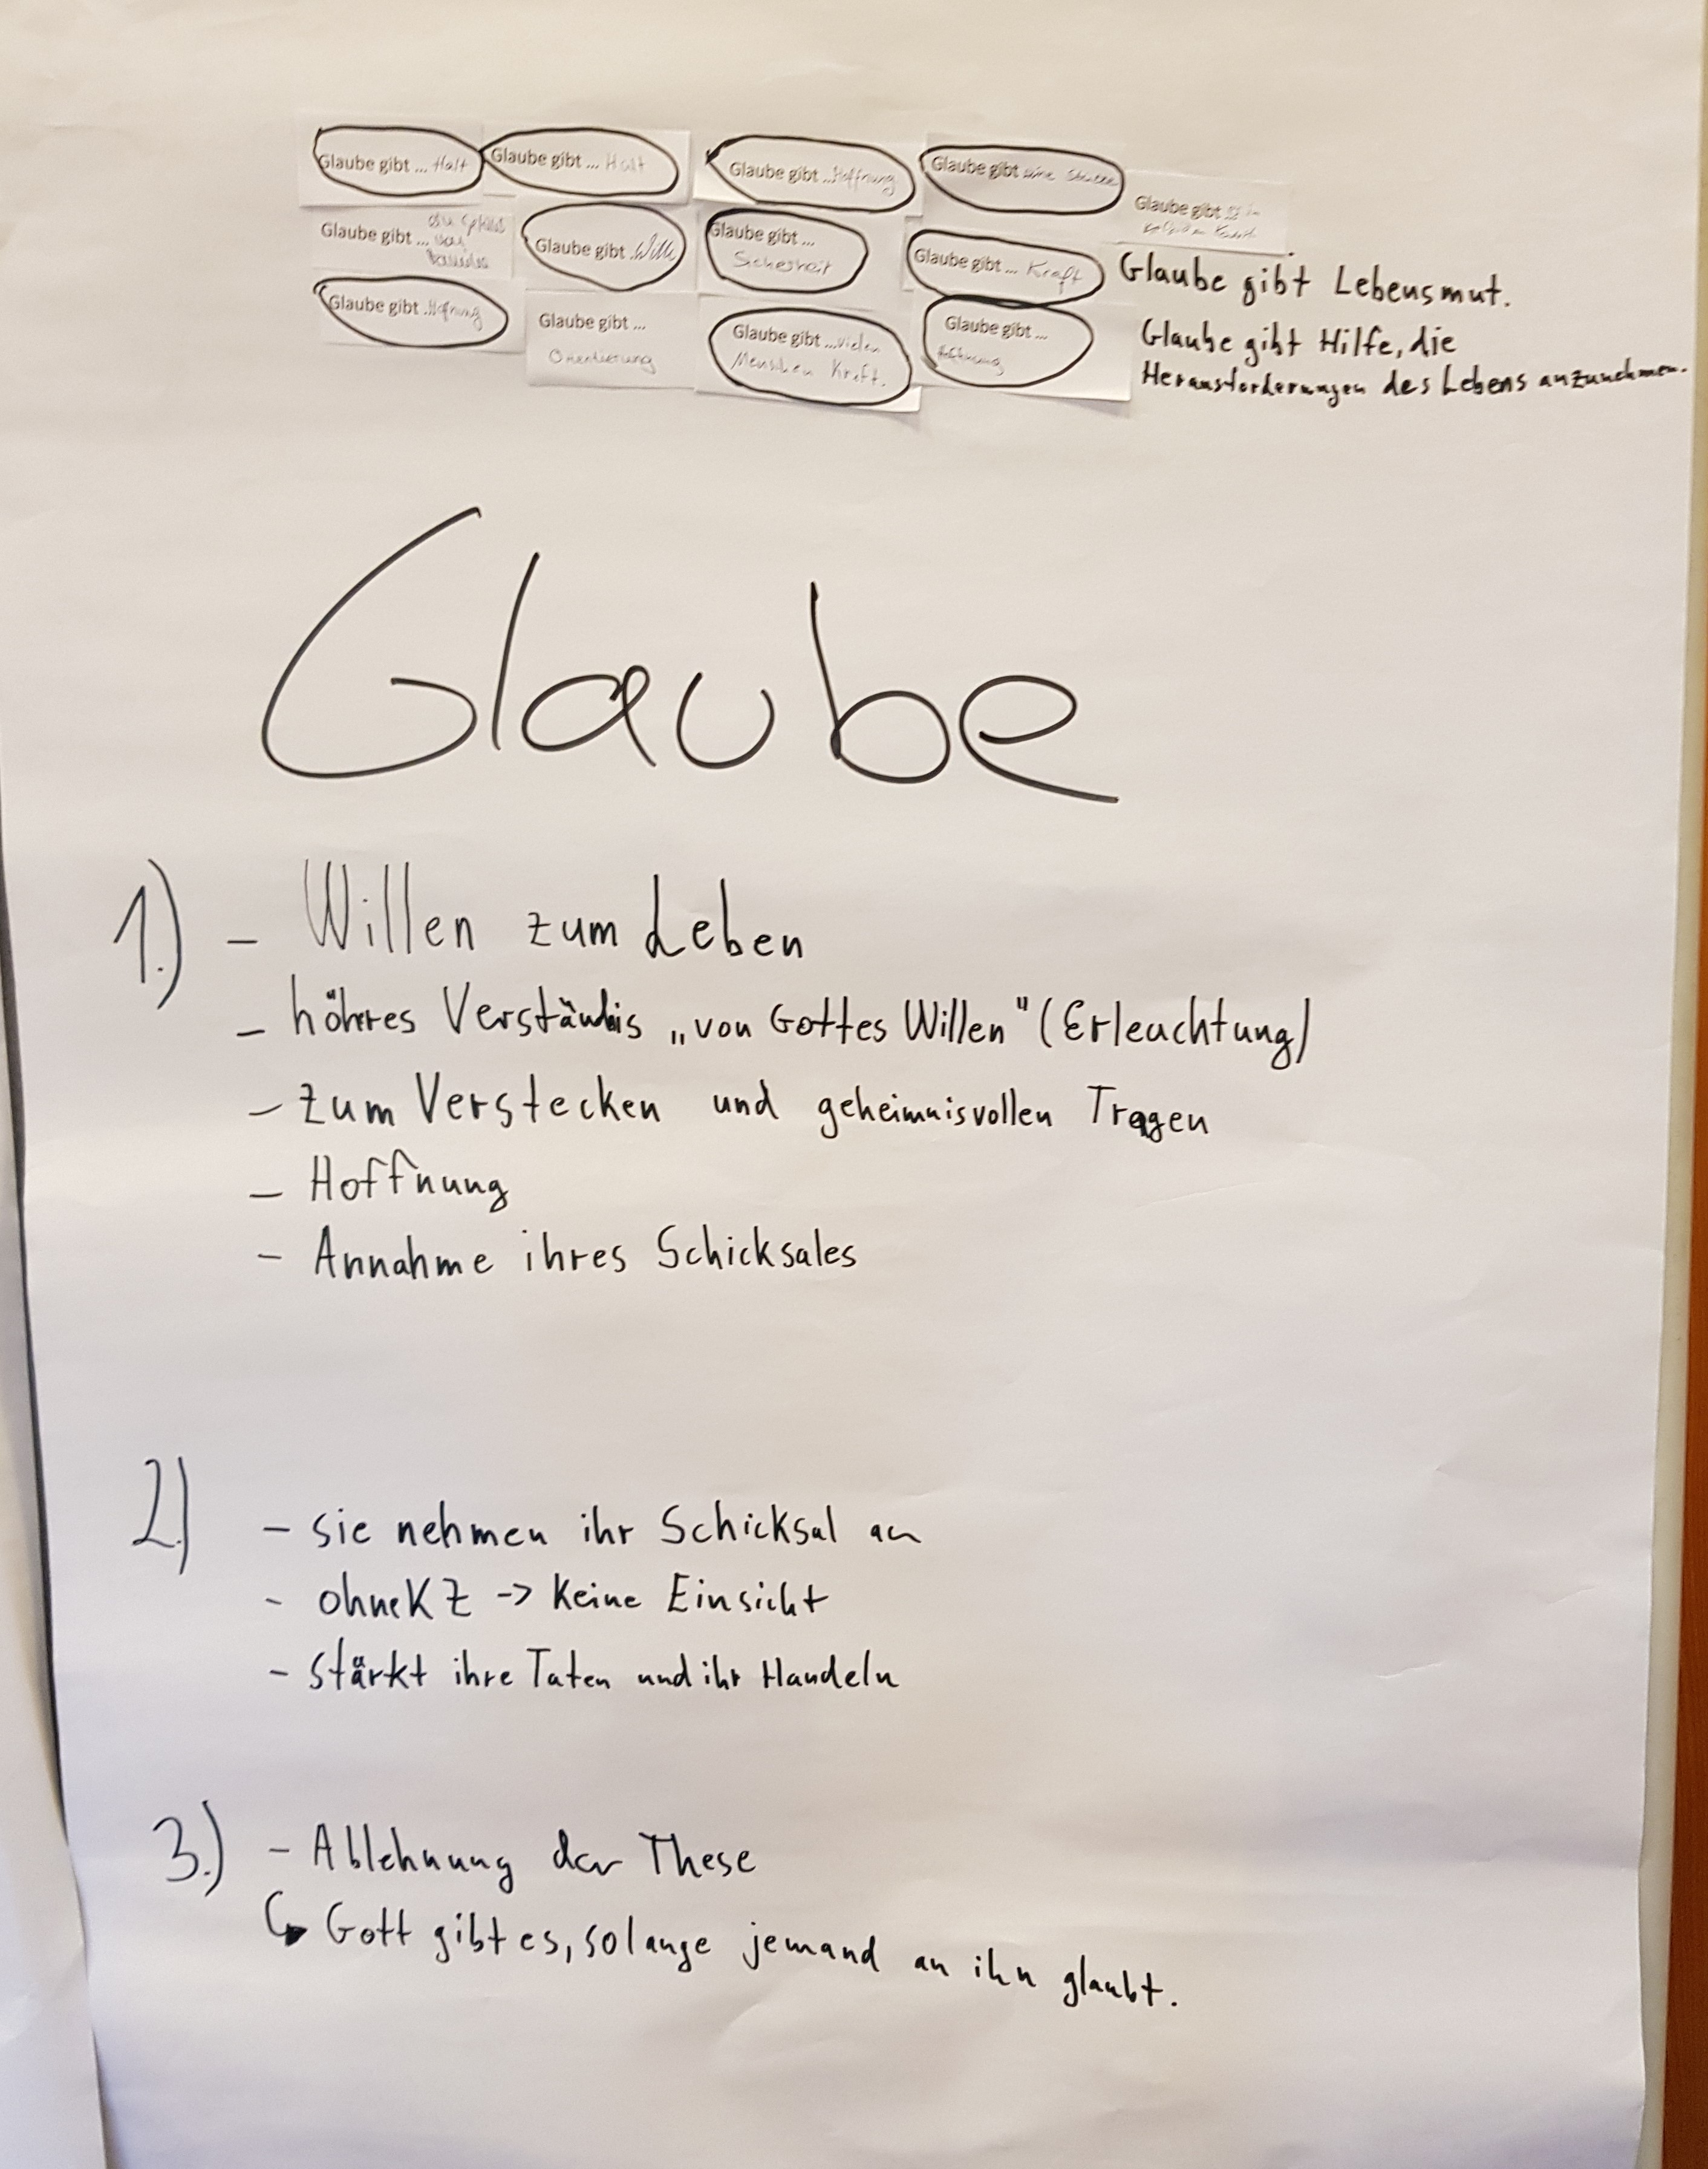 Glaube gibt ... Halt
Glaube gibt ... Halt
Glaube gibt ... Hoffnung
Glaube gibt eine
Glaube gibt
Glaube gibt ...
Glaube gibt Wille
Glaube gibt ...
Sicherheit
Glaube gibt ... Kraft
Glaube gibt Lebensmut.
Glaube gibt ... Hofnung
Glaube gibt ...
Orientierung
Glaube gibt ... vielen
Menschen Kraft.
Glaube gibt ...
Hoffnung
Glaube gibt Hilfe, die
Herausforderungen des Lebens anzunehmen.
Glaube
1.) - Willen zum Leben
- höheres Verständnis „von Gottes Willen" (Erleuchtung)
- zum Verstecken und geheimnisvollen Tragen
- Hoffnung
- Annahme ihres Schicksales
2.) - sie nehmen ihr Schicksal an
- ohne KZ -> keine Einsicht
- stärkt ihre Taten und ihr Handeln
3.) - Ablehnung der These
↳ Gott gibt es, solange jemand an ihn glaubt.